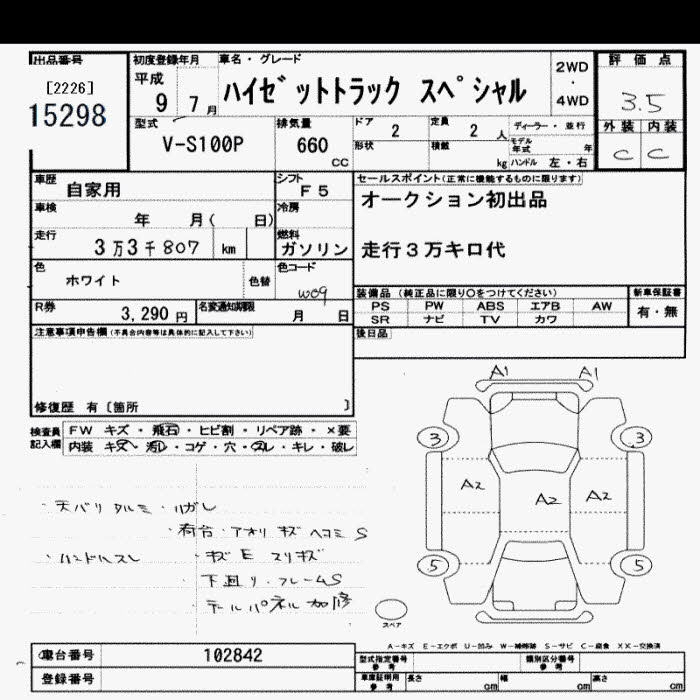 出品番号
[2226]
15298
初度登録年月
平成 9 7月
車名・グレード
ハイゼットトラック スペシャル
2WD
・
4WD
評価点
3.5
外装 内装
C C
型式
V-S100P
排気量
660
CC
ドア 2
定員 2 人
形状
積載 kg
ディーラー・並行
モデル年式 年
ハンドル 左・右
車歴 自家用
シフト F5
車検 年 月( 日)
冷房
走行 3万3千807 km
燃料 ガソリン
色 ホワイト 色替
色コード W09
R券 3,290円
名変通知期限 月 日
セールスポイント(正常に機能するものに限ります)
オークション初出品
走行3万キロ代
装備品 (純正品に限り○をつけてください)
PS PW ABS エアB AW
SR ナビ TV カワ
新車保証書
有・無
後日品
注意事項申告欄(不具合内容等は具体的に記入して下さい)
修復歴 有〔箇所 〕
検査員記入欄
FW キズ・飛石・ヒビ割・リペア跡・×要
内装 キズ・汚レ・コゲ・穴・スレ・キレ・破レ
・天バリ タルミ・ハガレ
・荷台・アオリ キズ ヘコミ S
・ハンドルスレ
・キズ E スリキズ
下廻り・フレームS
テールパネル 加修
A1 A1
3 3
A2 A2 A2
5 5
スペア
A-キズ E-エクボ U-凹み W-補修跡 S-サビ C-腐食 XX-交換済
車台番号 102842
登録番号
型式指定番号 参考
類別区分番号 参考
車庫証明用 参考
長さ cm 幅 cm 高さ cm